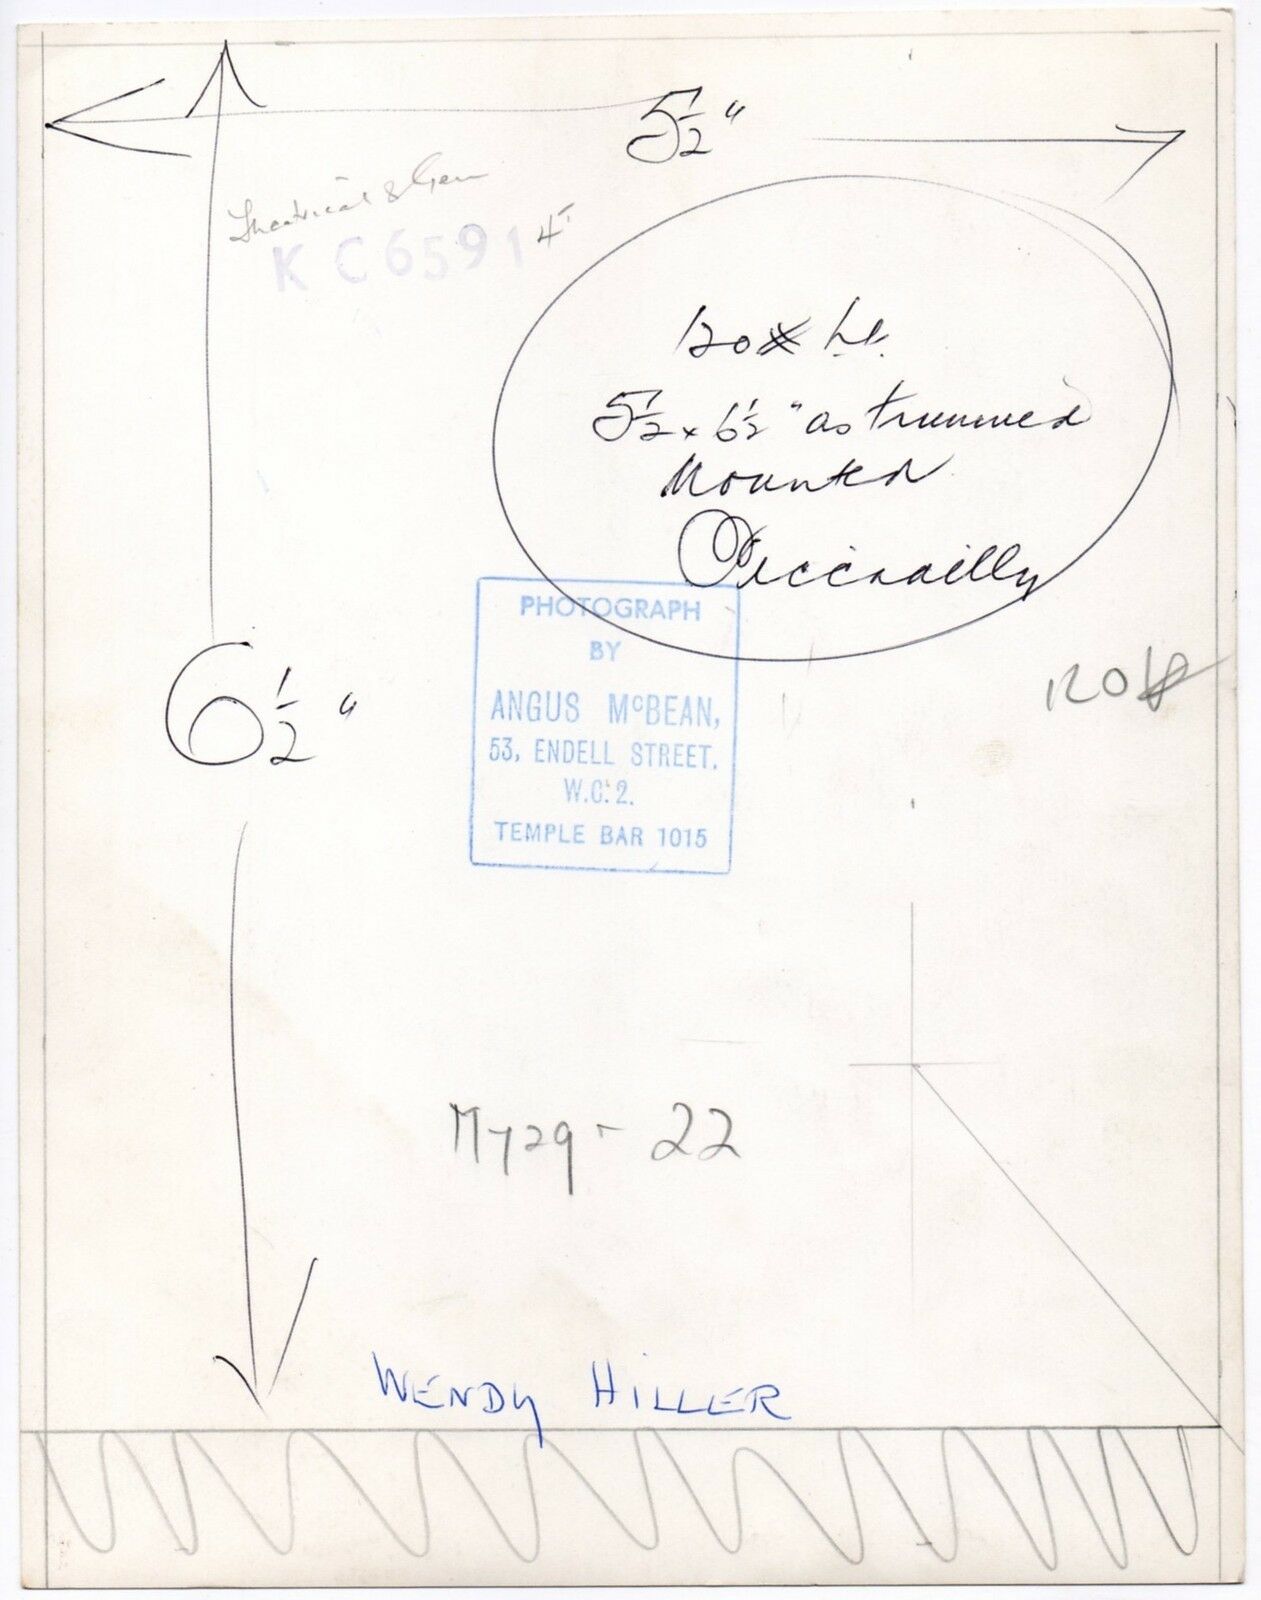 5½"
Theatrical & Gen
KC6591
4
120
5½ x 6½" as trimmed
Mounted
Piccadilly
PHOTOGRAPH
BY
ANGUS McBEAN,
53, ENDELL STREET.
W.C.2.
TEMPLE BAR 1015
120
6½"
My29-22
WENDY HILLER